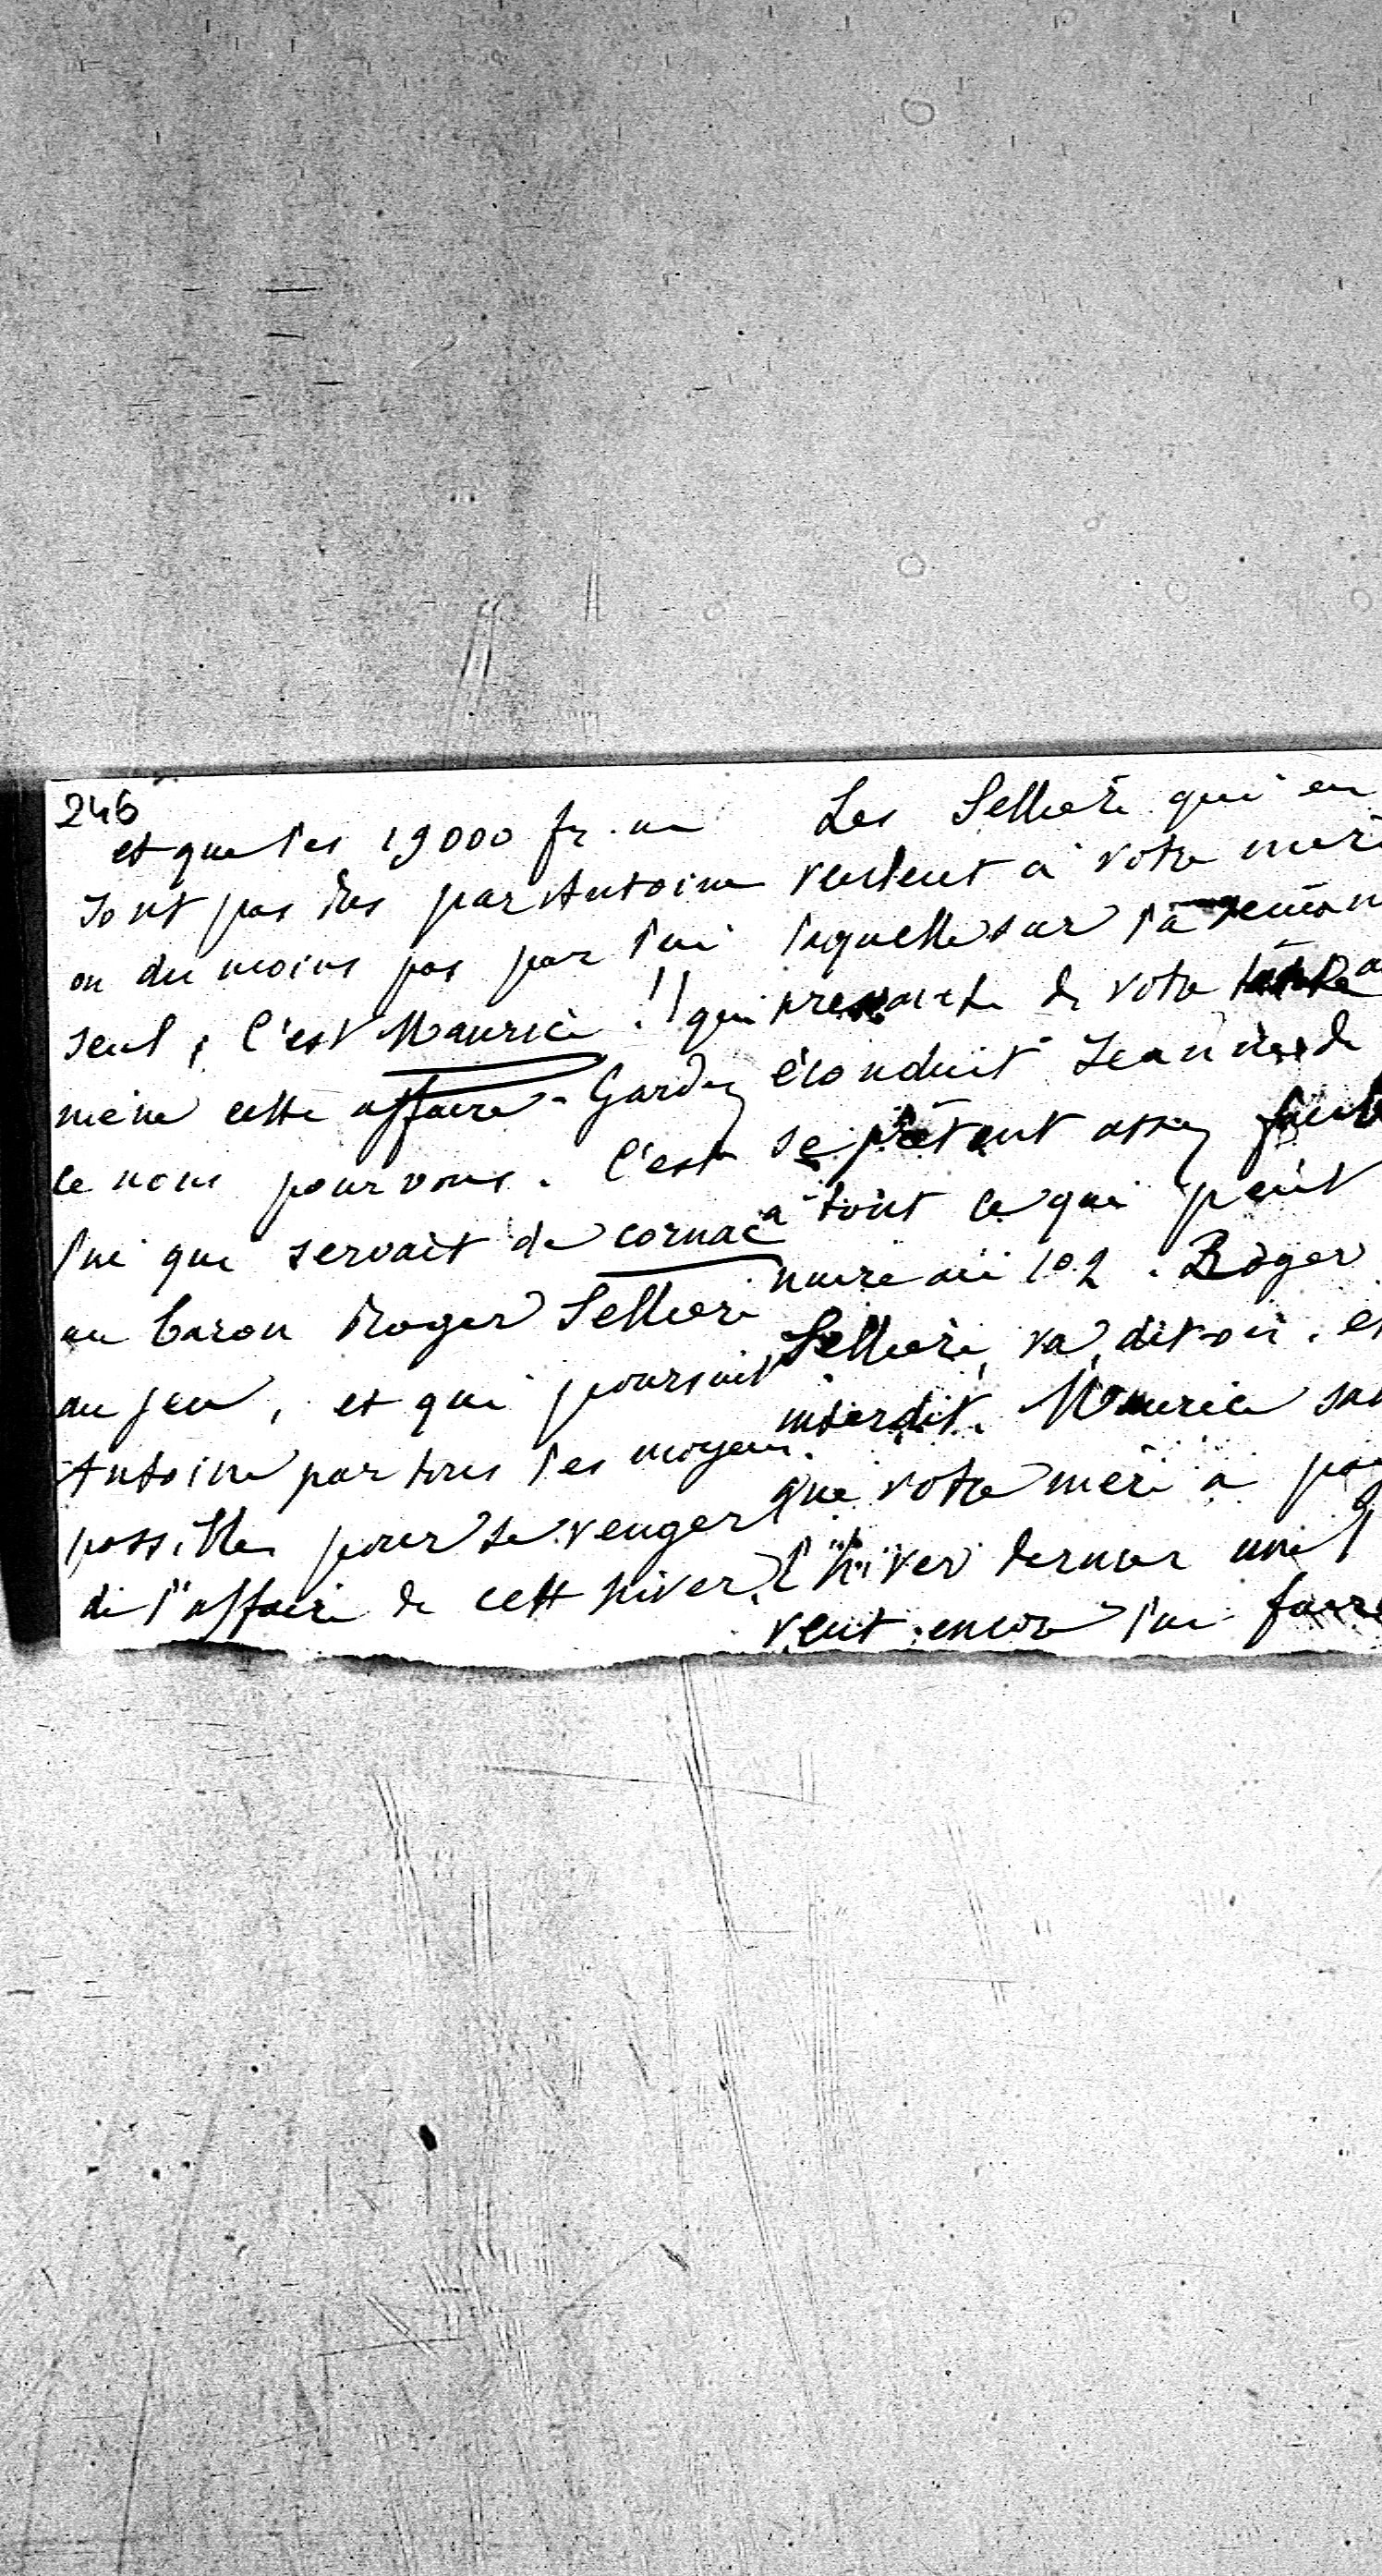 246
et que les 19000 fr. ne
sont pas dus par Antoine
ou du moins pas par lui
seul, c'est Maurice !! qui
mène cette affaire. Gardez
le nom pour vous. C'est
lui que servait de cornac
au baron Roger Sellière
au jeu, et qui poursuit
Antoine par tous les moyens
possibles pour se venger
de l'affaire de cett hiver.
Les Sellière qui en
veulent à votre mère
laquelle sur la
de votre
éconduit Jean
se prêtent assez
à tout ce qui peut
nuire au 102. Roger
Sellière, va, dit-on, et
interdit. Maurice sa
que votre mère a pa
l'hiver dernier une
veut encore lui faire